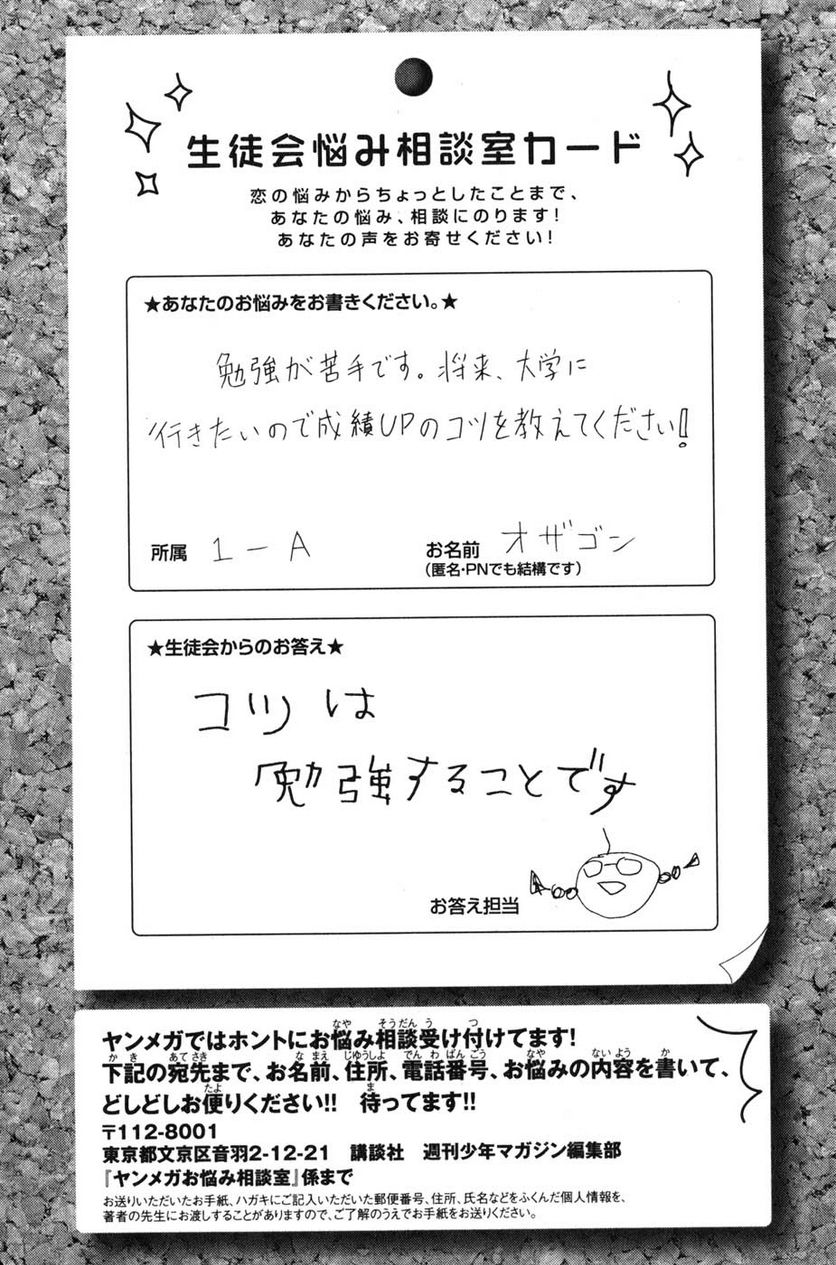 生徒会悩み相談室カード
恋の悩みからちょっとしたことまで、
あなたの悩み、相談にのります!
あなたの声をお寄せください!
★あなたのお悩みをお書きください。★
勉強が苦手です。将来、大学に
行きたいので成績UPのコツを教えてください!
所属 1-A お名前 オザゴン
(匿名・PNでも結構です)
★生徒会からのお答え★
コツは
勉強することです
お答え担当
ヤンメガではホントにお悩み相談受け付けてます!
下記の宛先まで、お名前、住所、電話番号、お悩みの内容を書いて、
どしどしお便りください!! 待ってます!!
〒112-8001
東京都文京区音羽2-12-21 講談社 週刊少年マガジン編集部
『ヤンメガお悩み相談室』係まで
お送りいただいたお手紙、ハガキにご記入いただいた郵便番号、住所、氏名などをふくんだ個人情報を、
著者の先生にお渡しすることがありますので、ご了解のうえでお手紙をお送りください。